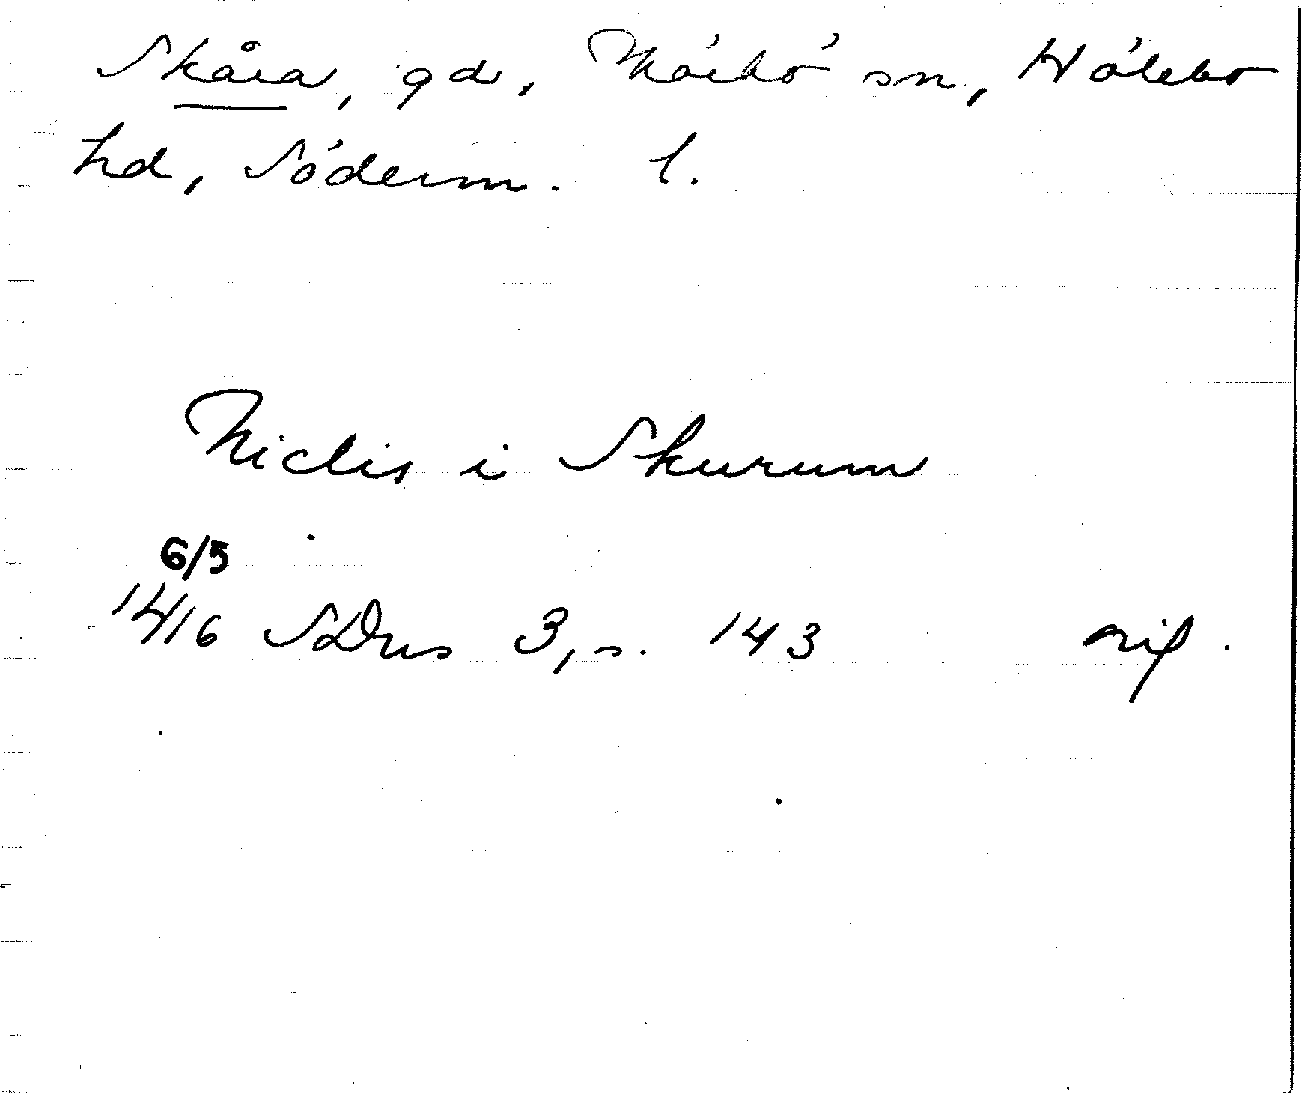 Skåra, gd, Mörkö sn, Hölebo
hd, Söderm. l.
Niclis i Skurum
6/5
1416 SDns 3, s. 143 nif.